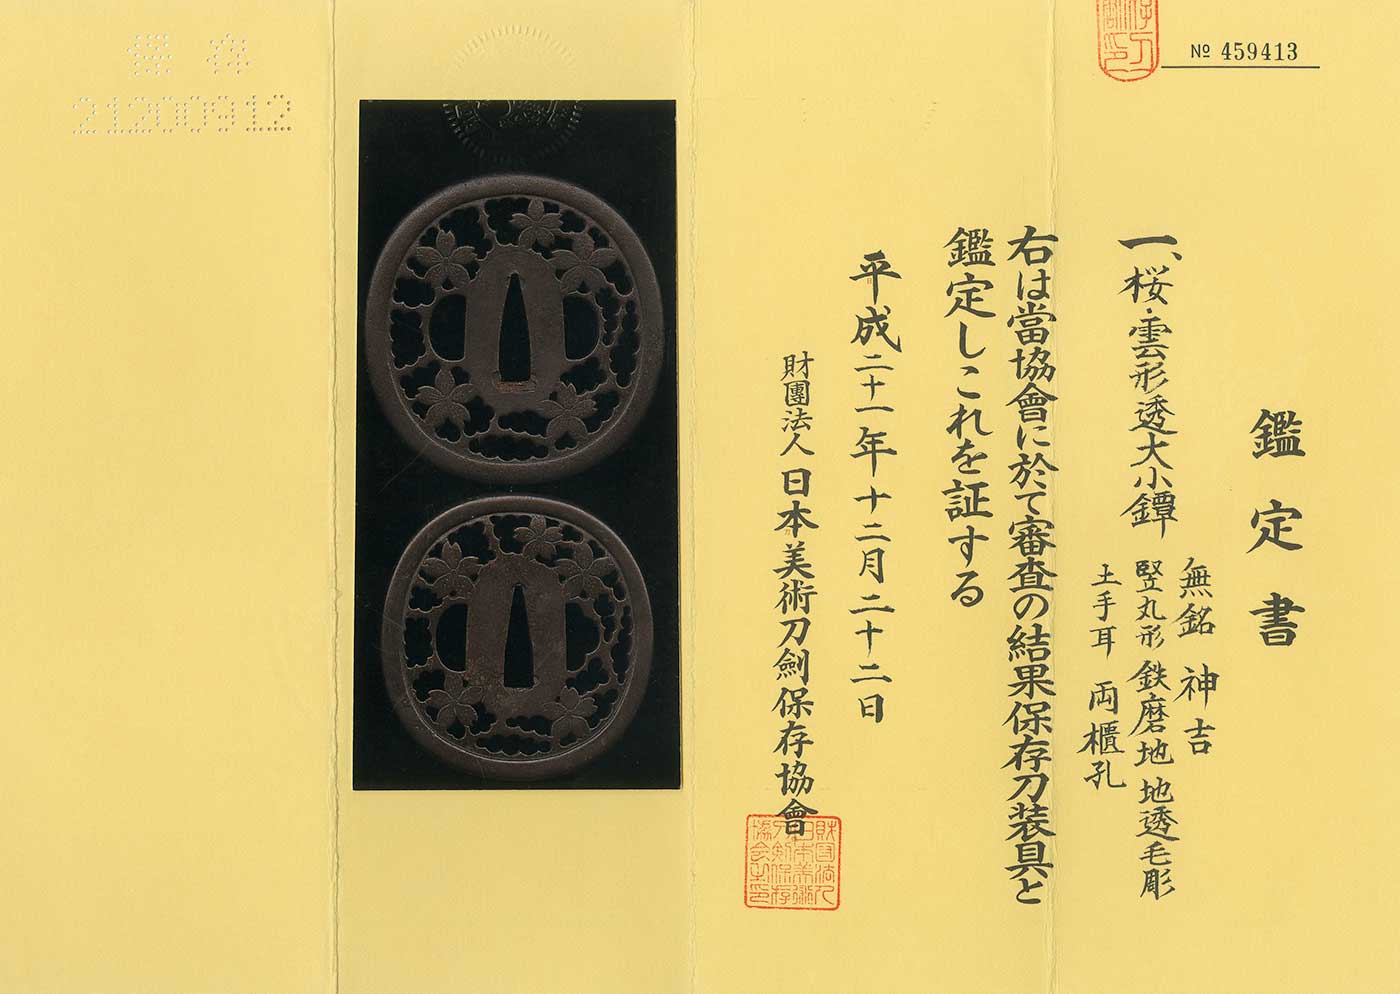 № 459413
鑑定書
無銘 神吉
一、桜・雲形透大小鐔 竪丸形 鉄磨地 地透毛彫
土手耳 両櫃孔
右は當協會に於て審査の結果保存刀装具と
鑑定しこれを証する
平成二十一年十二月二十二日
財團法人 日本美術刀劍保存協會
財団法人日本美術刀剣保存協会之印
保存
21200912